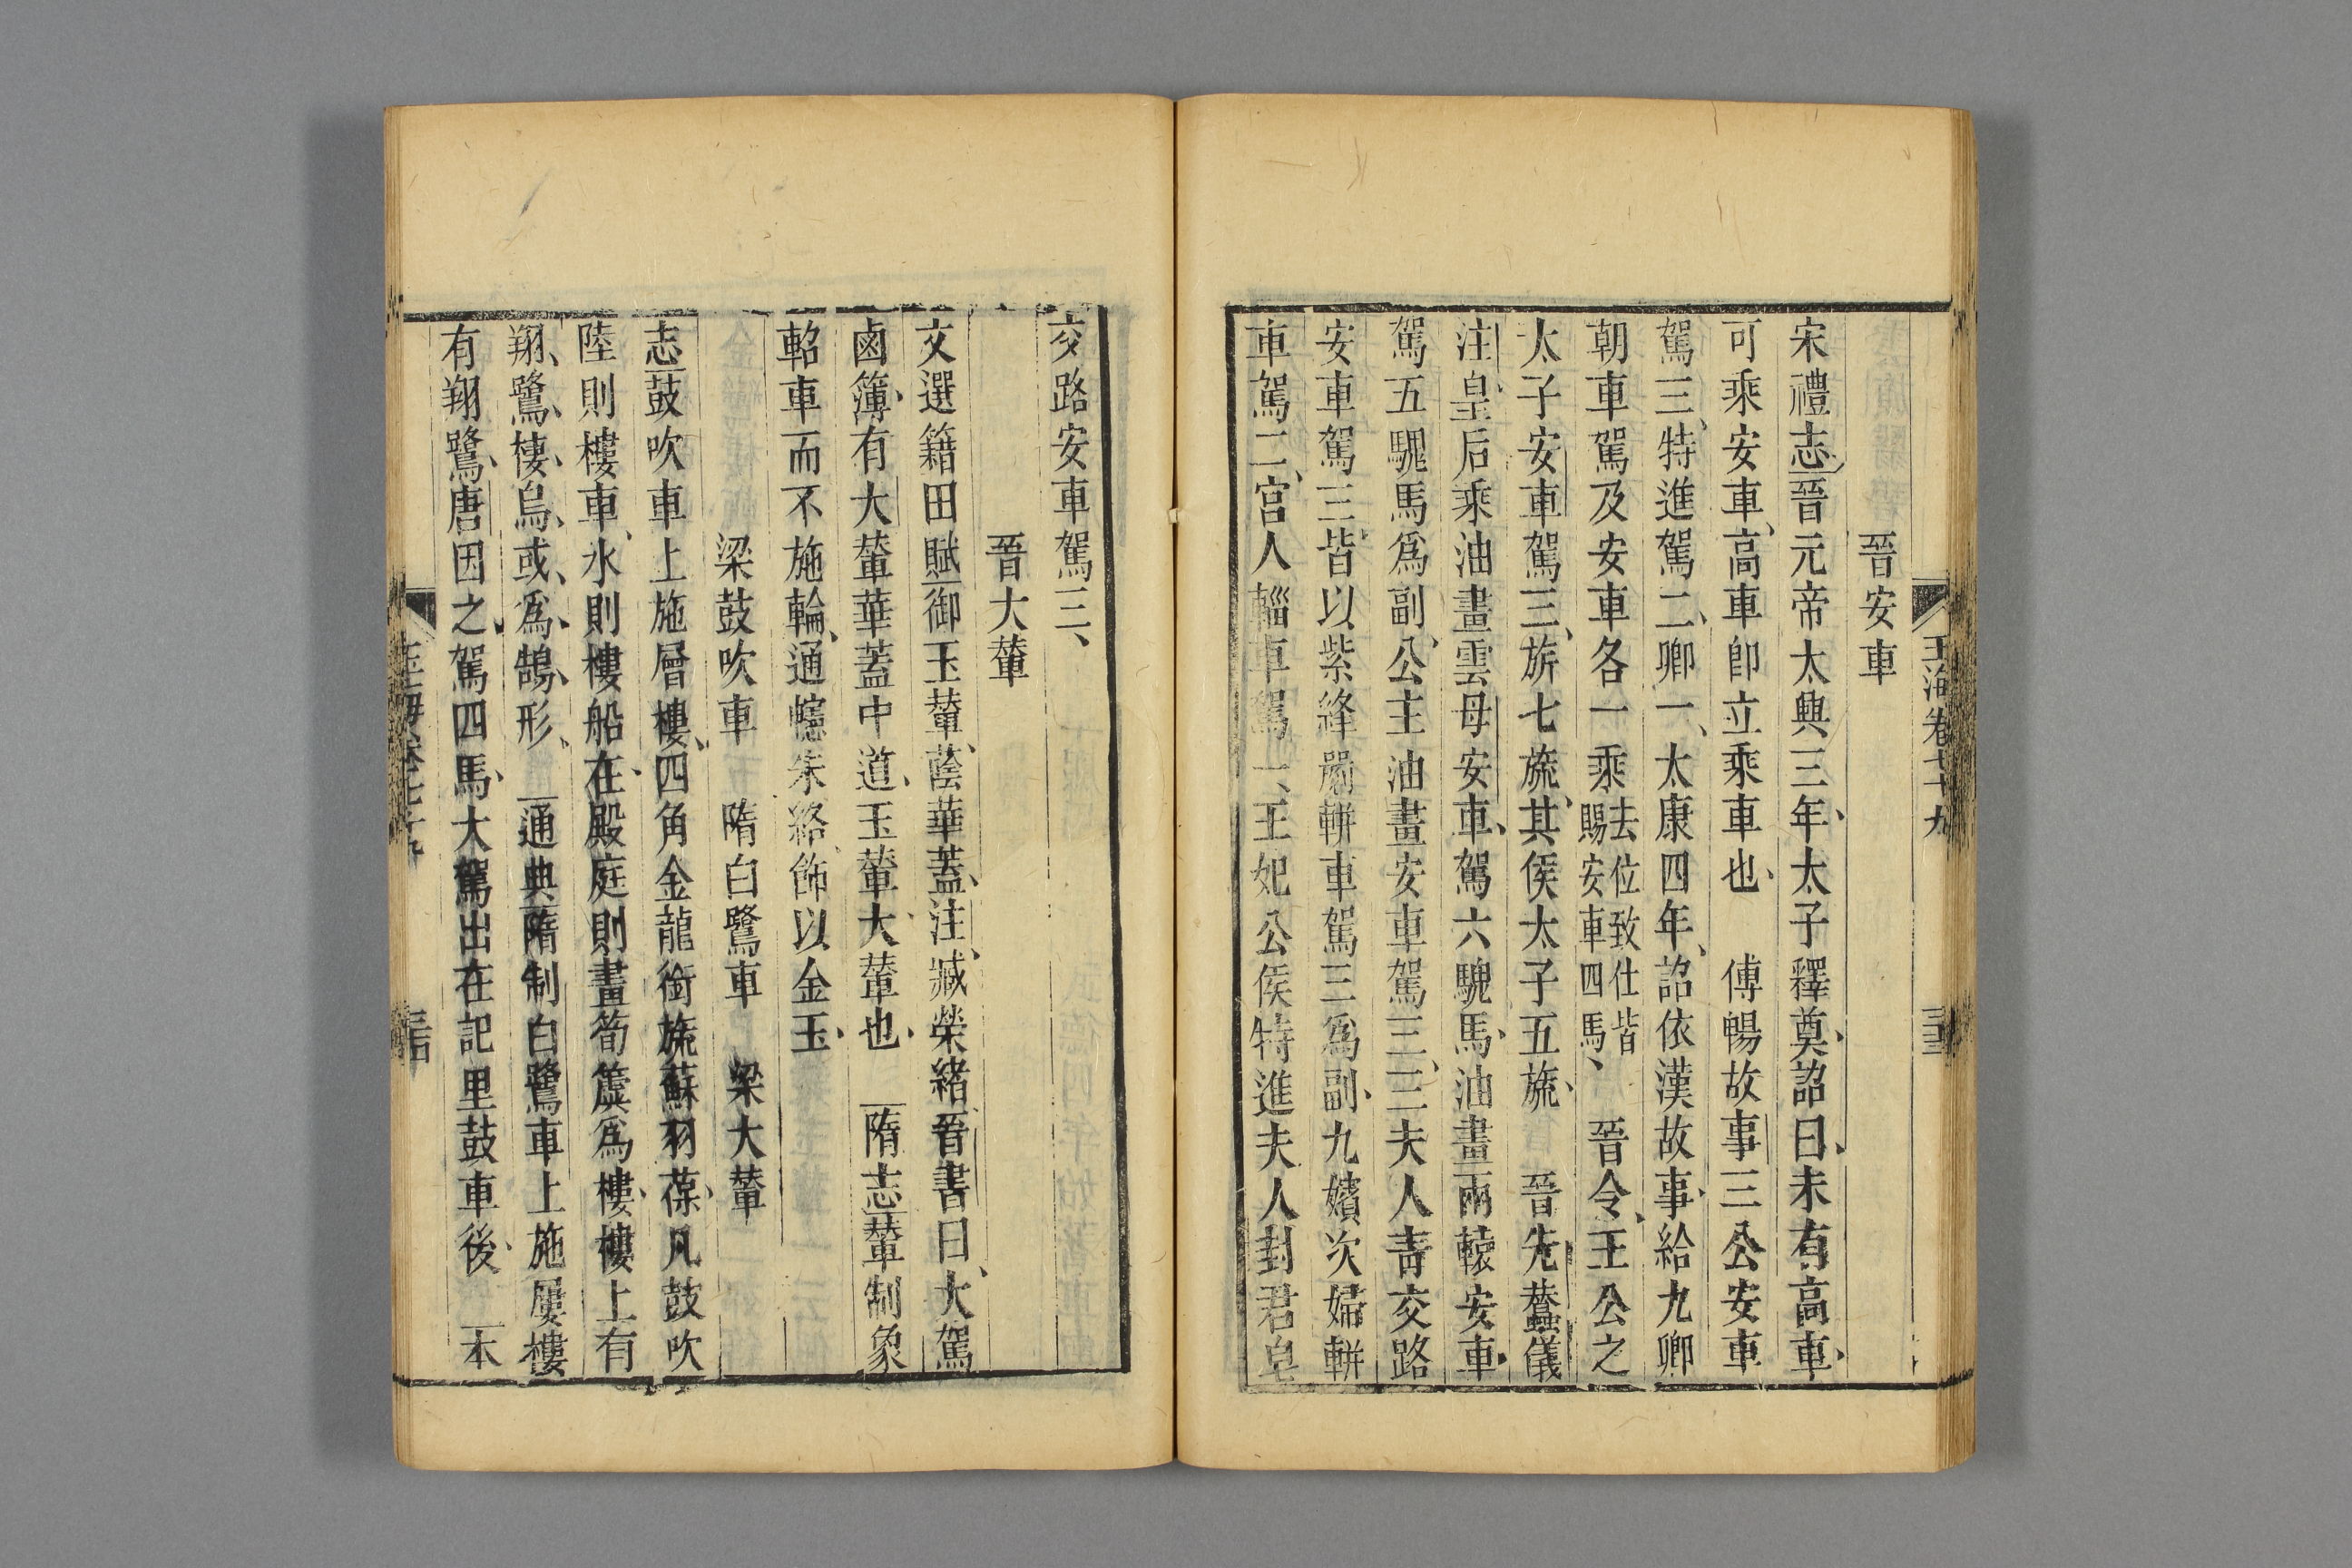 玉海卷七十九
晉安車
宋禮志晉元帝太興三年、太子釋奠、詔曰、未有高車、
可乘安車、高車卽立乘車也、傅暢故事三公安車
駕三、特進駕二、卿一、太康四年、詔依漢故事、給九卿
朝車駕及安車各一乘去位致仕皆賜安車四馬、晉令、王公之
太子安車駕三、旂七旒、其侯太子五旒、晉先蠶儀
注、皇后乘油畫雲母安車、駕六騩馬、油畫兩轅安車、
駕五騩馬爲副、公主油畫安車駕三、三夫人靑交路
安車駕三、皆以紫絳罽軿車駕三爲副、九嬪次婦軿
車駕二、宮人輜車駕一、王妃公侯特進夫人封君皂
交路安車駕三、
晉大輦
文選籍田賦御玉輦、蔭華蓋、注、臧榮緒晉書曰、大駕
鹵簿、有大輦華蓋中道、玉輦、大輦也、隋志輦制象
軺車而不施輪、通幰朱絡、飾以金玉、
梁鼓吹車 隋白鷺車 梁大輦
志鼓吹車上施層樓、四角金龍銜旒蘇羽葆、凡鼓吹
陸則樓車、水則樓船、在殿庭則畫筍簴爲樓、樓上有
翔、鷺、棲、烏、或、爲、鵠、形、通典隋制白鷺車上施層樓
有翔鷺、唐因之、駕四馬、大駕出在記里鼓車後、一本